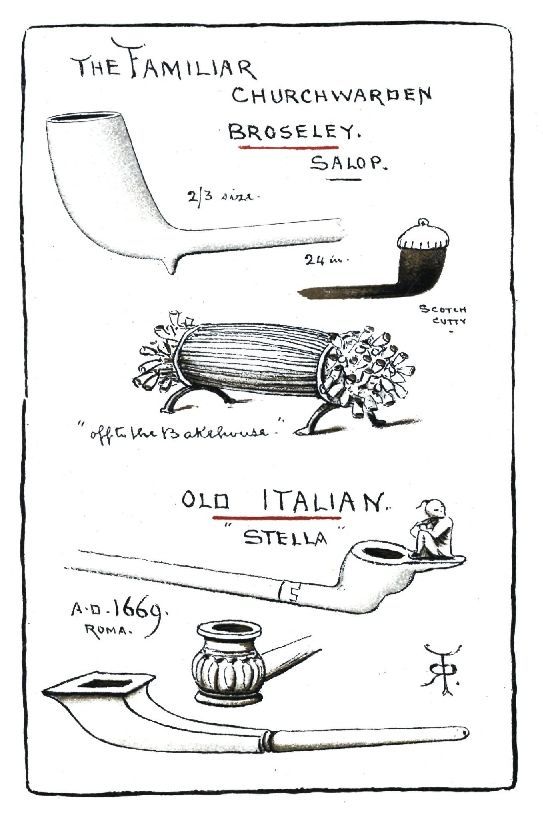 THE FAMILIAR
CHURCHWARDEN
BROSELEY.
SALOP.
2/3 size.
24 in.
SCOTCH
CUTTY
"off to the Bakehouse."
OLD ITALIAN.
"STELLA"
A.D. 1669.
ROMA.